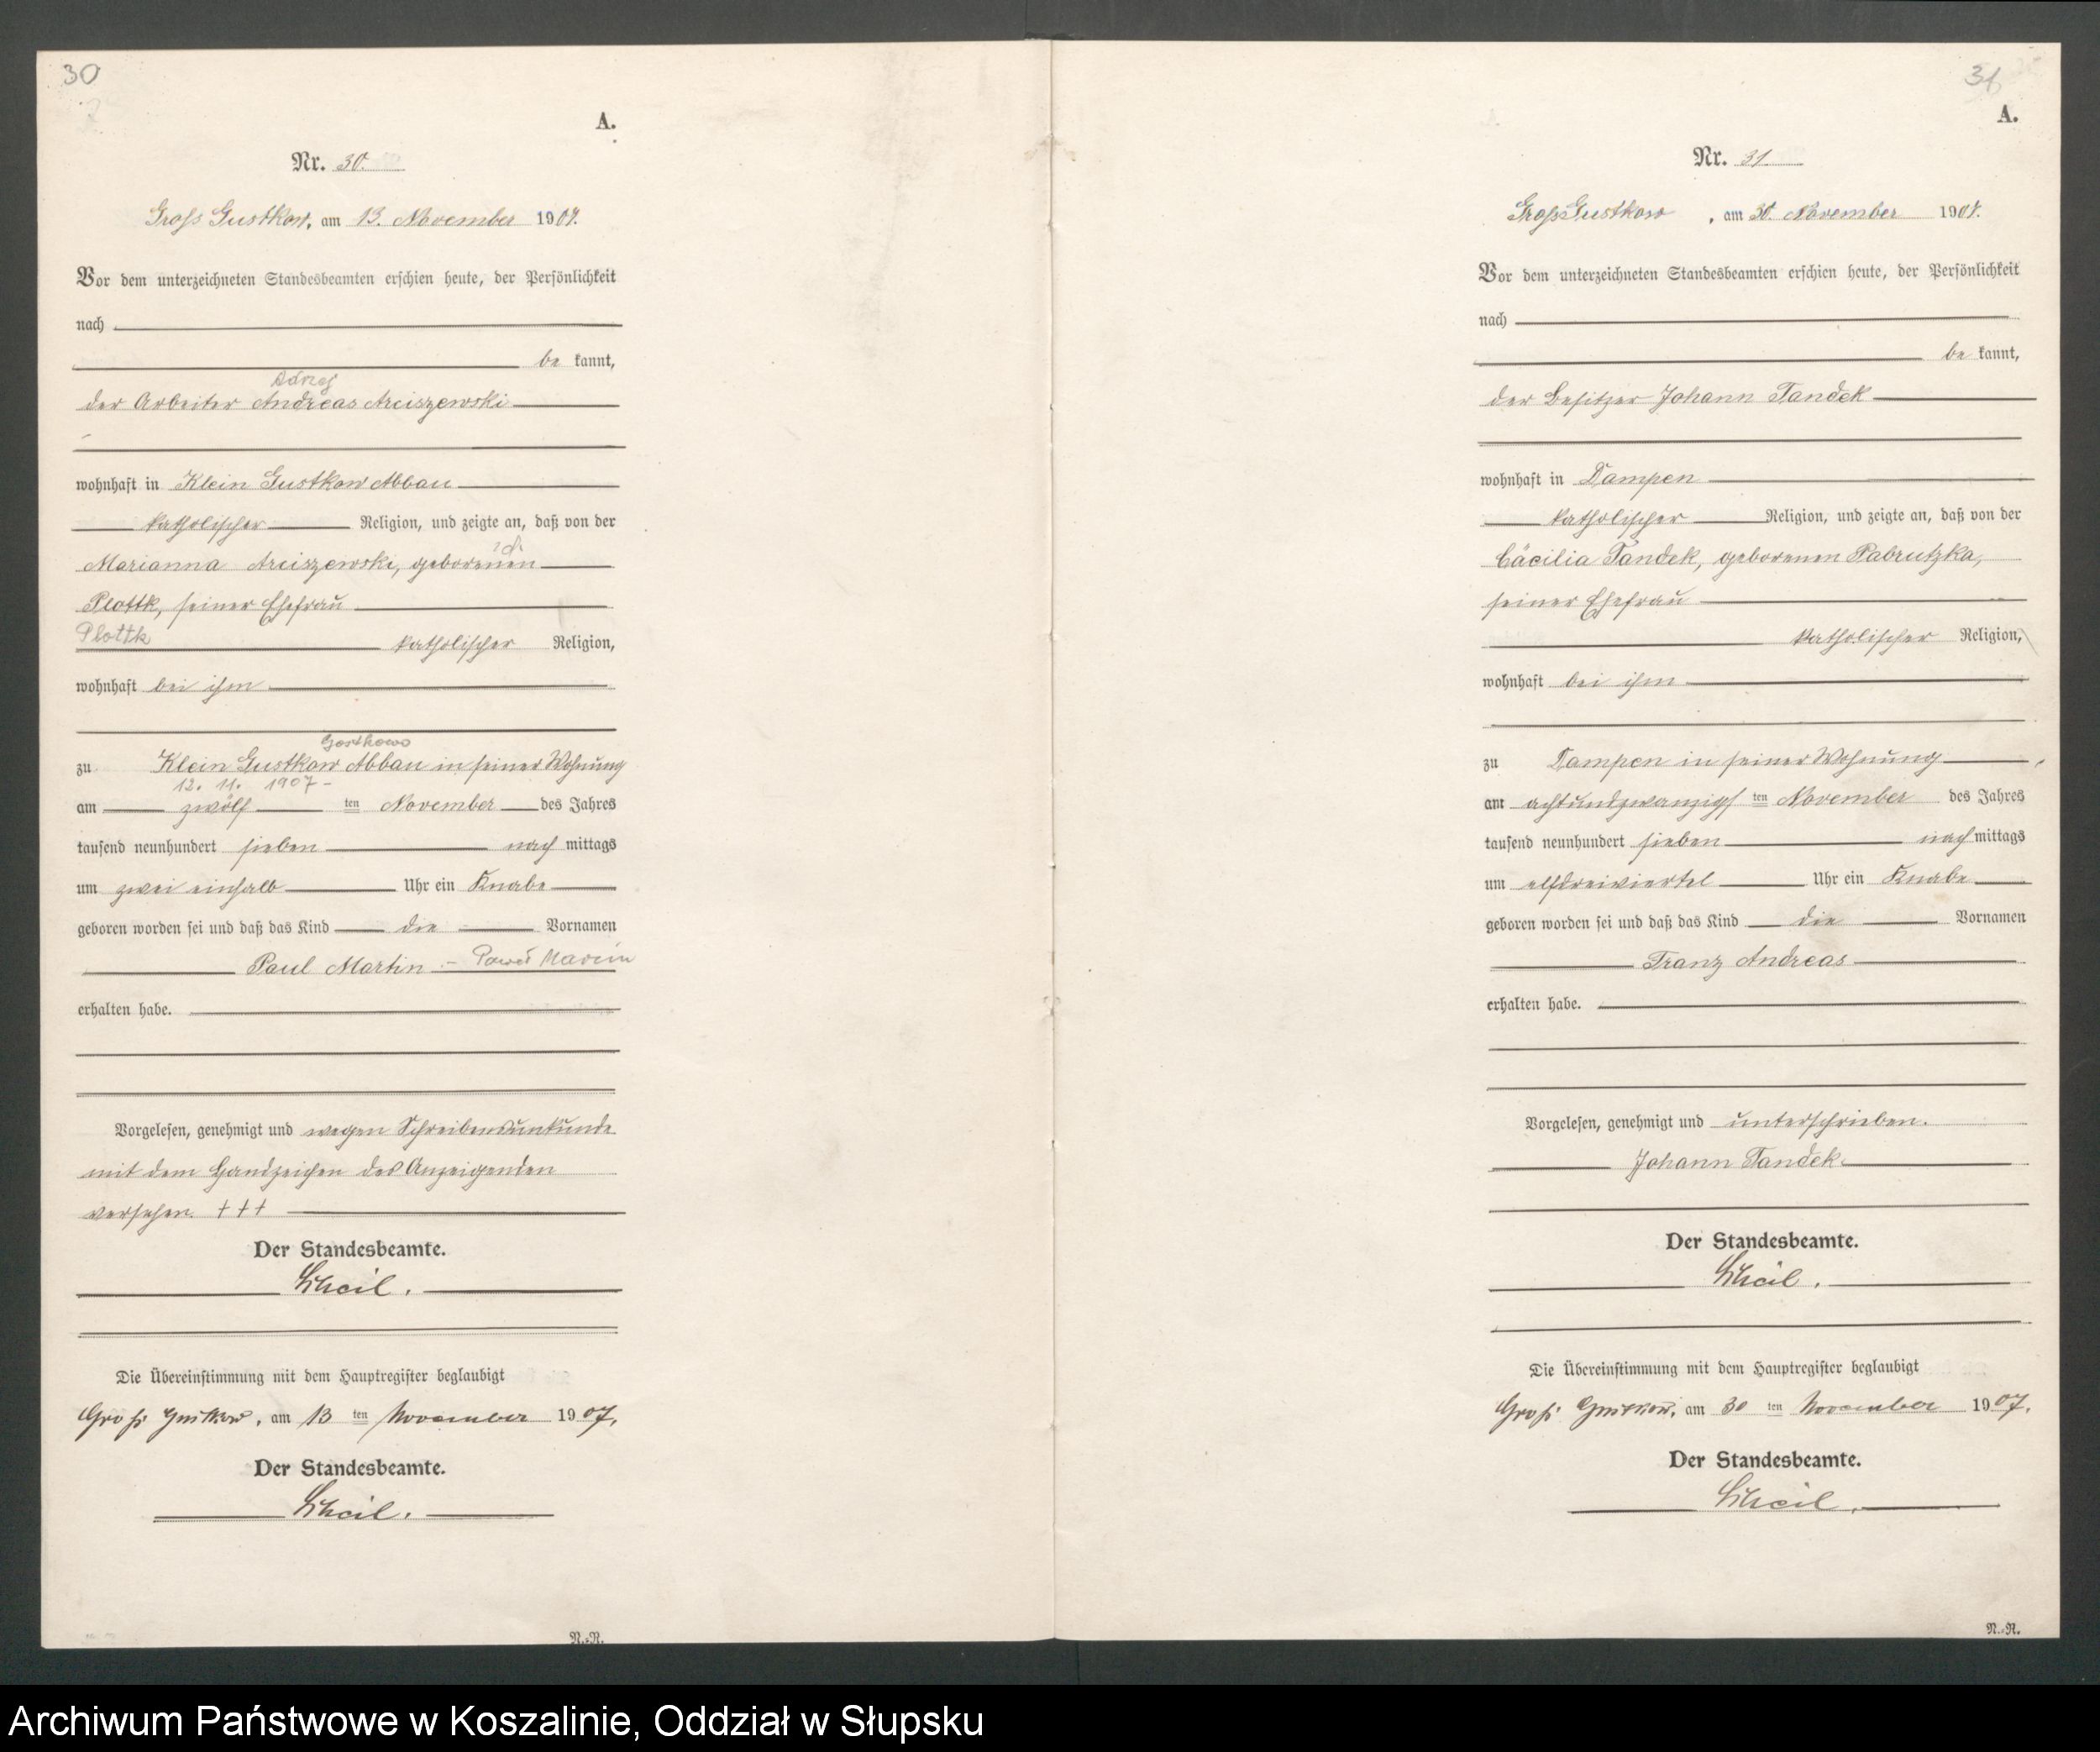 30
A.
Nr. 30.
Gross Gustkow, am 13. November 1907.
Vor dem unterzeichneten Standesbeamten erschien heute, der Persönlichkeit
nach
be kannt,
der Arbeiter Andreas Arciszewski
wohnhaft in Klein Gustkow Abbau
katholischer Religion, und zeigte an, daß von der
Marianna Arciszewski, geborenen
Plottk, seiner Ehefrau
Plottk
katholischer Religion,
wohnhaft bei ihm
Gostkowo
zu Klein Gustkow Abbau in seiner Wohnung
12. 11. 1907 -
am zwölf ten November des Jahres
tausend neunhundert sieben nach mittags
um zwei einhalb Uhr ein Knabe
geboren worden sei und daß das Kind die Vornamen
Paul Martin - Paweł Marcin
erhalten habe.
Vorgelesen, genehmigt und wegen Schreibensunkunde
mit dem Handzeichen des Anzeigenden
versehen. +++
Der Standesbeamte.
Die Übereinstimmung mit dem Hauptregister beglaubigt
Groß Gustkow, am 13 ten November 1907.
Der Standesbeamte.
N.-R.
31
A.
Nr. 31.
Gross Gustkow, am 30. November 1907.
Vor dem unterzeichneten Standesbeamten erschien heute, der Persönlichkeit
nach
be kannt,
der Besitzer Johann Tandek
wohnhaft in Dampen
katholischer Religion, und zeigte an, daß von der
Cäcilia Tandek, geborenen Pabrutzka,
seiner Ehefrau
katholischer Religion,
wohnhaft bei ihm
zu Dampen in seiner Wohnung
am achtundzwanzigs ten November des Jahres
tausend neunhundert sieben nach mittags
um elfdreiviertel Uhr ein Knabe
geboren worden sei und daß das Kind die Vornamen
Franz Andreas
erhalten habe.
Vorgelesen, genehmigt und unterschrieben.
Johann Tandek
Der Standesbeamte.
Die Übereinstimmung mit dem Hauptregister beglaubigt
Groß Gustkow, am 30 ten November 1907.
Der Standesbeamte.
N.-R.
Archiwum Państwowe w Koszalinie, Oddział w Słupsku